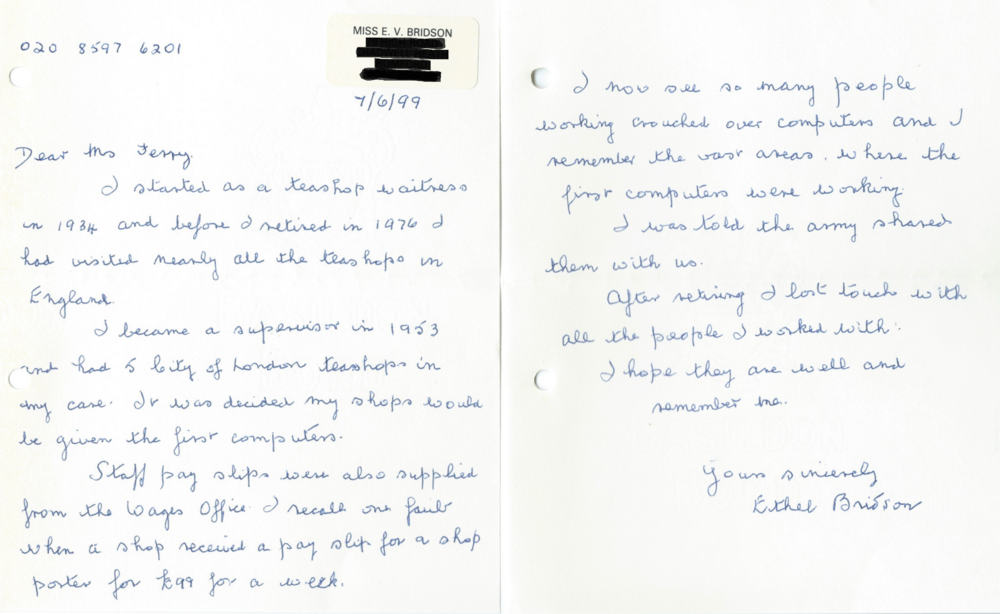 020 8597 6201
MISS E. V. BRIDSON
7/6/99
Dear Ms Ferry.
I started as a teashop waitress
in 1934 and before I retired in 1976 I
had visited nearly all the teashops in
England.
I became a supervisor in 1953
and had 5 City of London teashops in
my case. It was decided my shops would
be given the first computers.
Staff pay slips were also supplied
from the Wages Office. I recall one fault
when a shop received a pay slip for a shop
porter for £99 for a week.
I now see so many people
working crouched over computers and I
remember the vast areas. where the
first computers were working.
I was told the army shared
them with us.
After retiring I lost touch with
all the people I worked with.
I hope they are well and
remember me.
Yours sincerely
Ethel Bridson